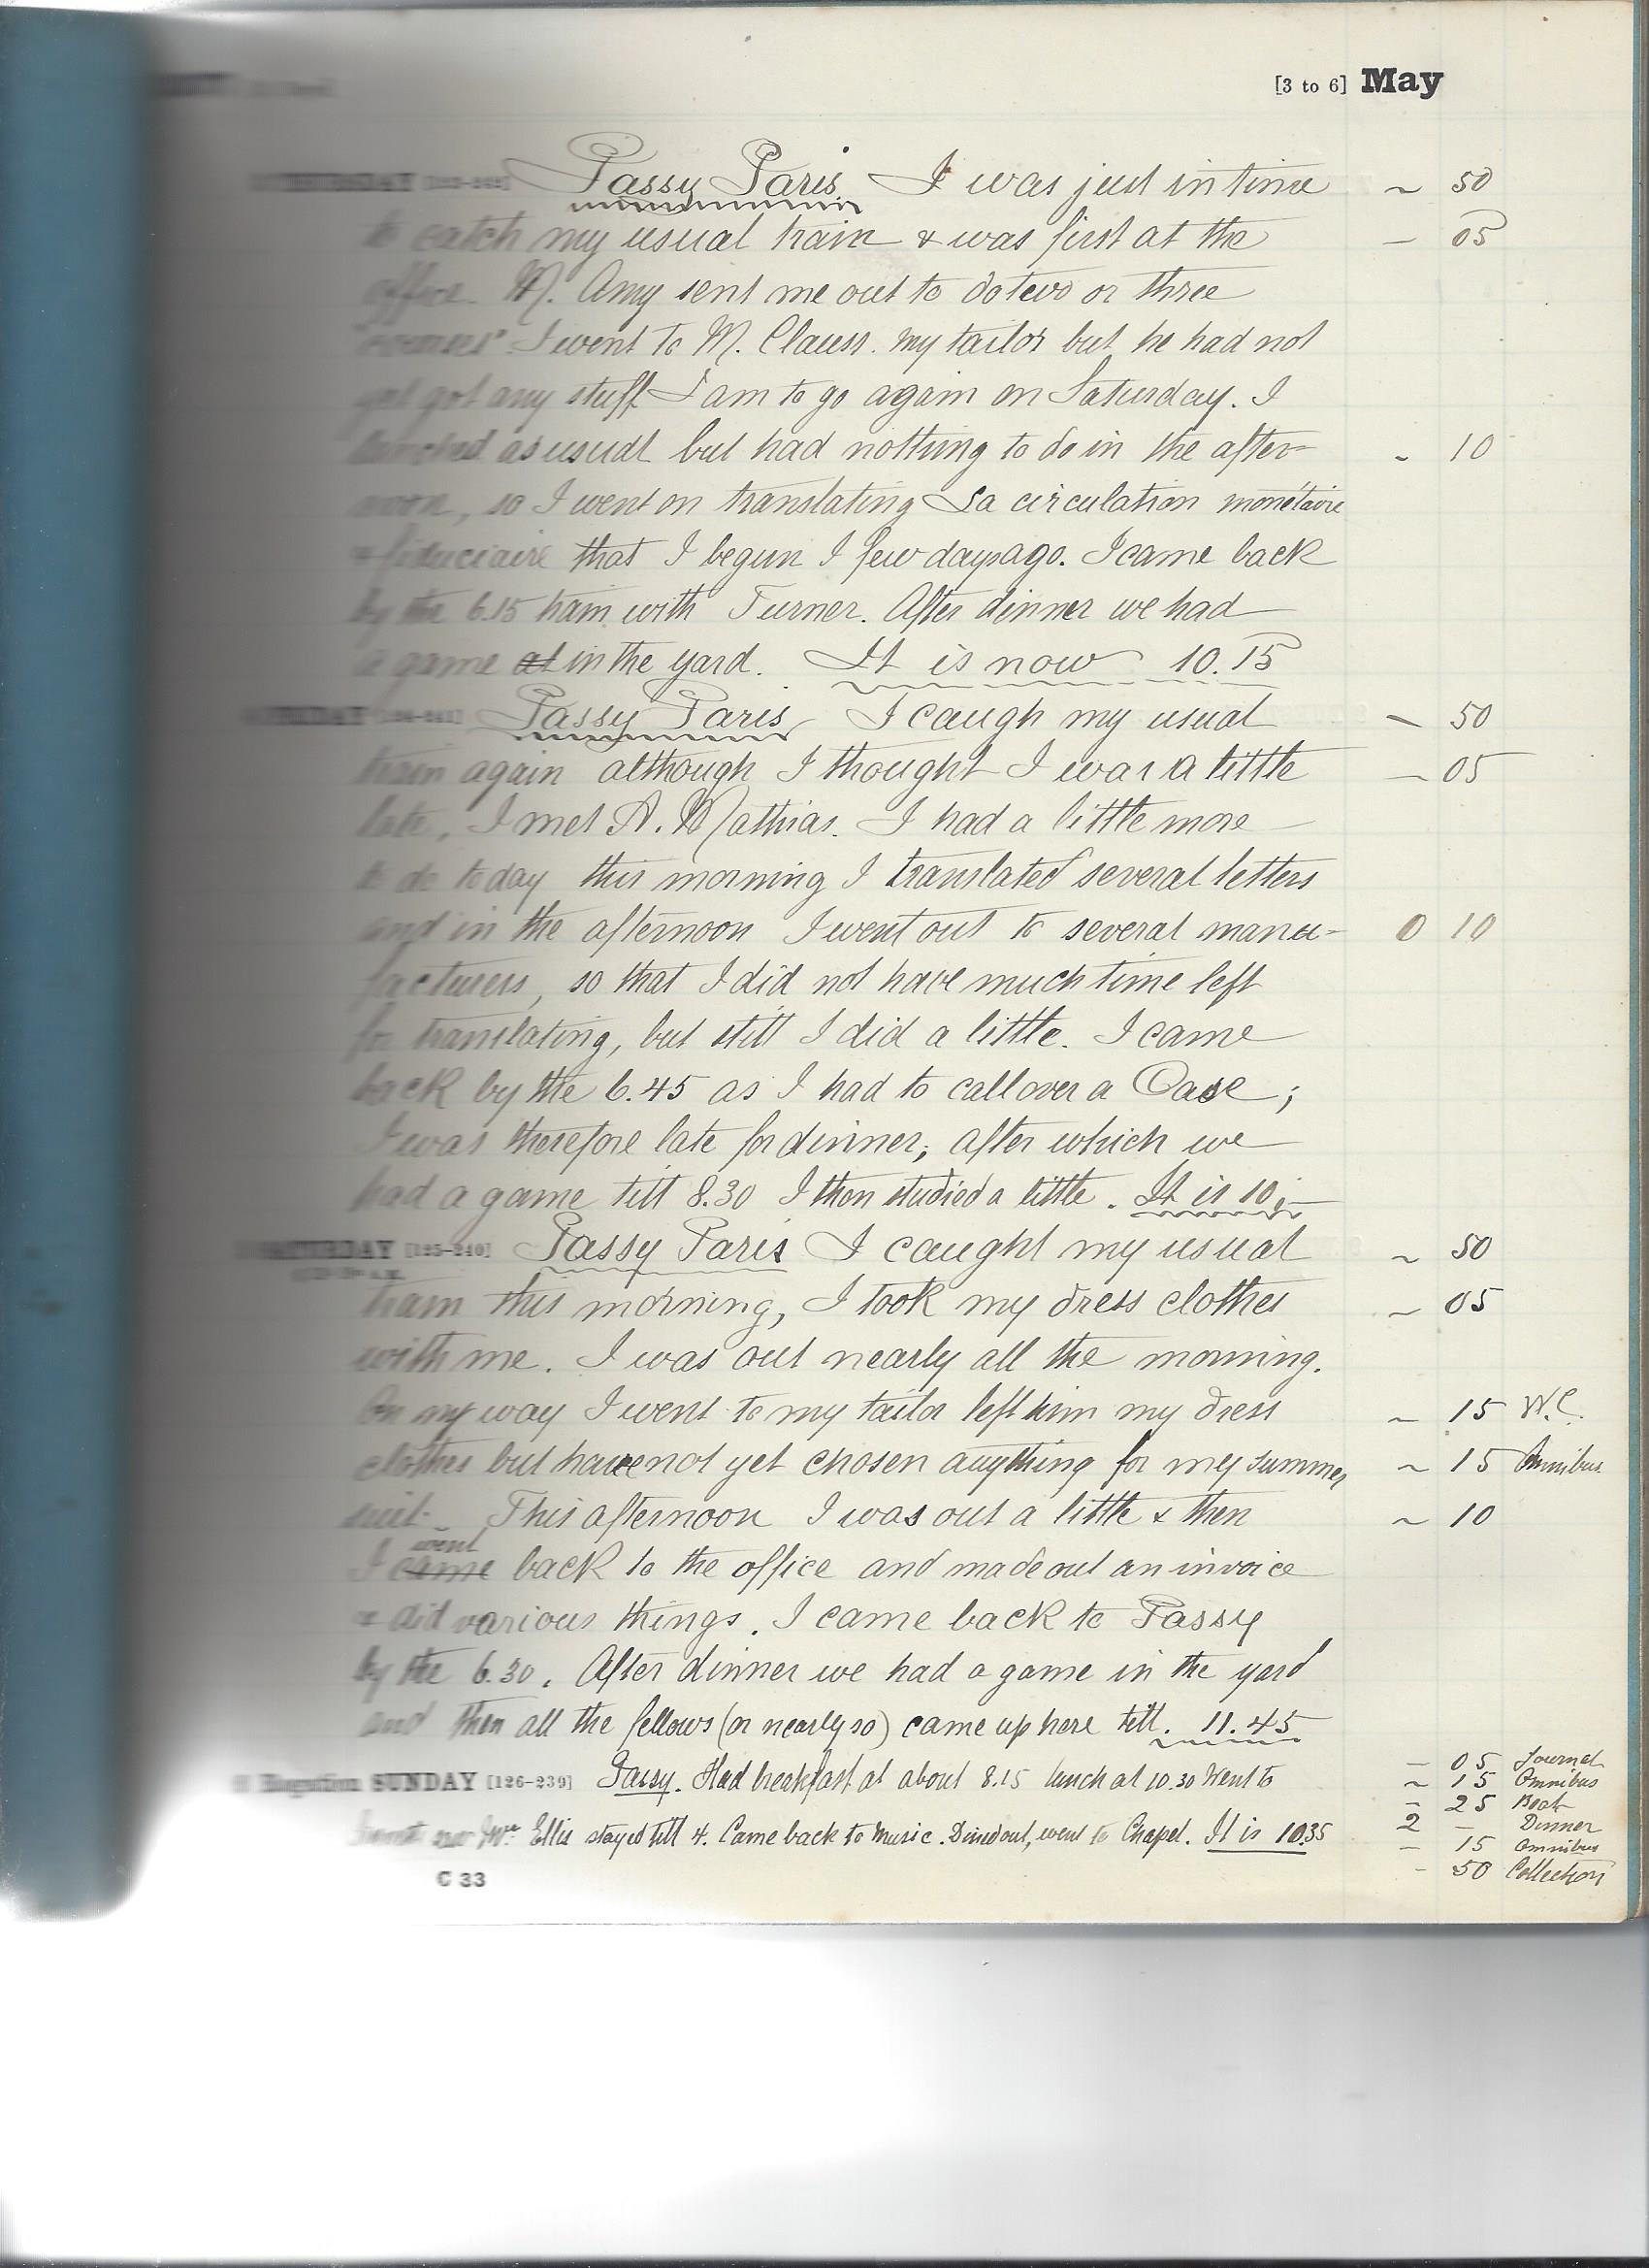 [3 to 6] May
THURSDAY Passy Paris I was just in time ~ 50
to catch my usual train & was first at the — 05
office. M. Amy sent me out to do two or three
I went to M. Clauss. my tailor but he had not
yet got any stuff I am to go again on Saturday. I
lunched as usual but had nothing to do in the after- ~ 10
noon, so I went on translating La circulation monétaire
& fiduciaire that I begun I few days ago. I came back
by the 6.15 train with Turner. After dinner we had
a game at in the yard. It is now 10.15
FRIDAY Passy Paris I caugh my usual ~ 50
train again although I thought I was a little — 05
late, I met A. Mathias. I had a little more
to do today this morning I translated several letters
and in the afternoon I went out to several manu- 0 10
facturers, so that I did not have much time left
for translating, but still I did a little. I came
back by the 6.45 as I had to call over a Case;
I was therefore late for dinner; after which we
had a game till 8.30 I then studied a little. It is 10.
SATURDAY [125-240] Passy Paris I caught my usual ~ 50
train this morning, I took my dress clothes ~ 05
with me. I was out nearly all the morning.
On my way I went to my tailor left him my dress ~ 15 W.C.
clothes but have not yet chosen anything for my summer ~ 15 Omnibus
suit. This afternoon I was out a little & then ~ 10
went
I came back to the office and made out an invoice
& did various things. I came back to Passy
by the 6.30. After dinner we had a game in the yard
and then all the fellows (or nearly so) came up here till. 11.45
Rogation SUNDAY [126-239] Passy. Had breakfast at about 8.15 lunch at 10.30 Went to
Mrs Ellis stayed till 4. Came back to music. Dined out, went to Chapel. It is 10.35
— 05 Journal
~ 15 Omnibus
– 25 Boat
2 – Dinner
— 15 Omnibus
- 50 Collection
C 33